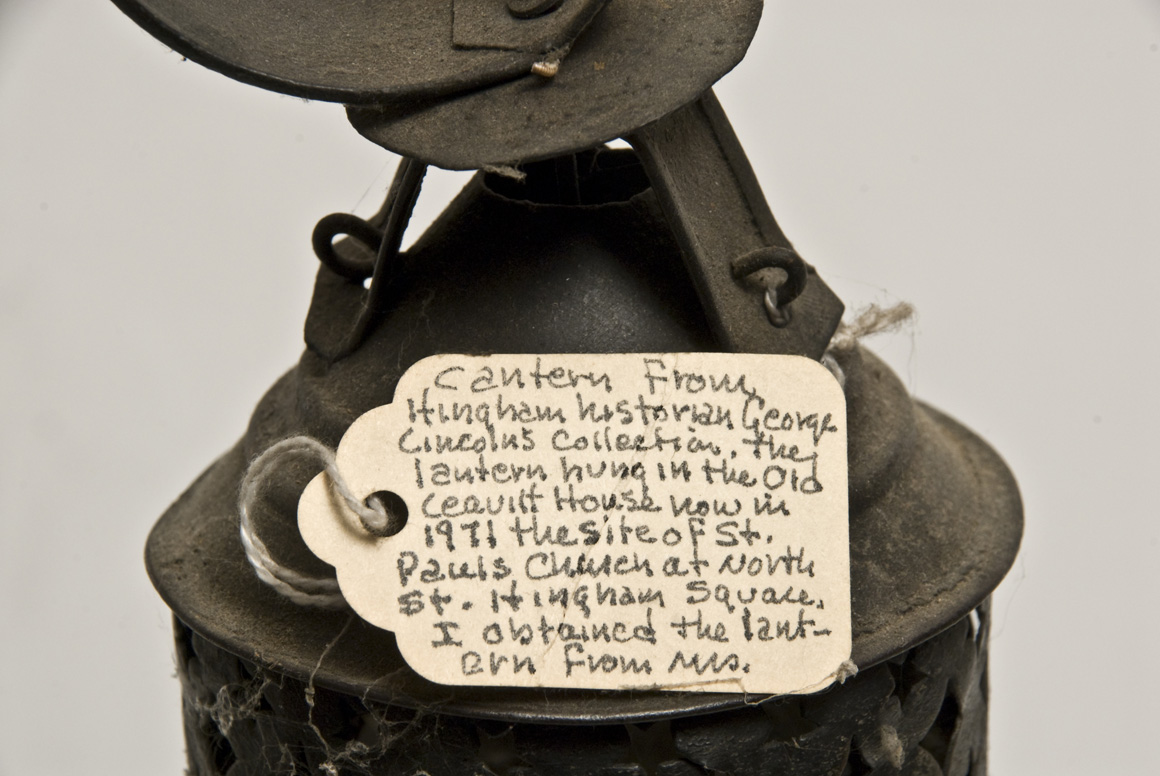 Lantern From
Hingham historian George
Lincoln's collection. the
lantern hung in the Old
Leavitt House now in
1971 the site of St.
Pauls Church at North
St. Hingham Square.
I obtained the lant-
ern from Mrs.